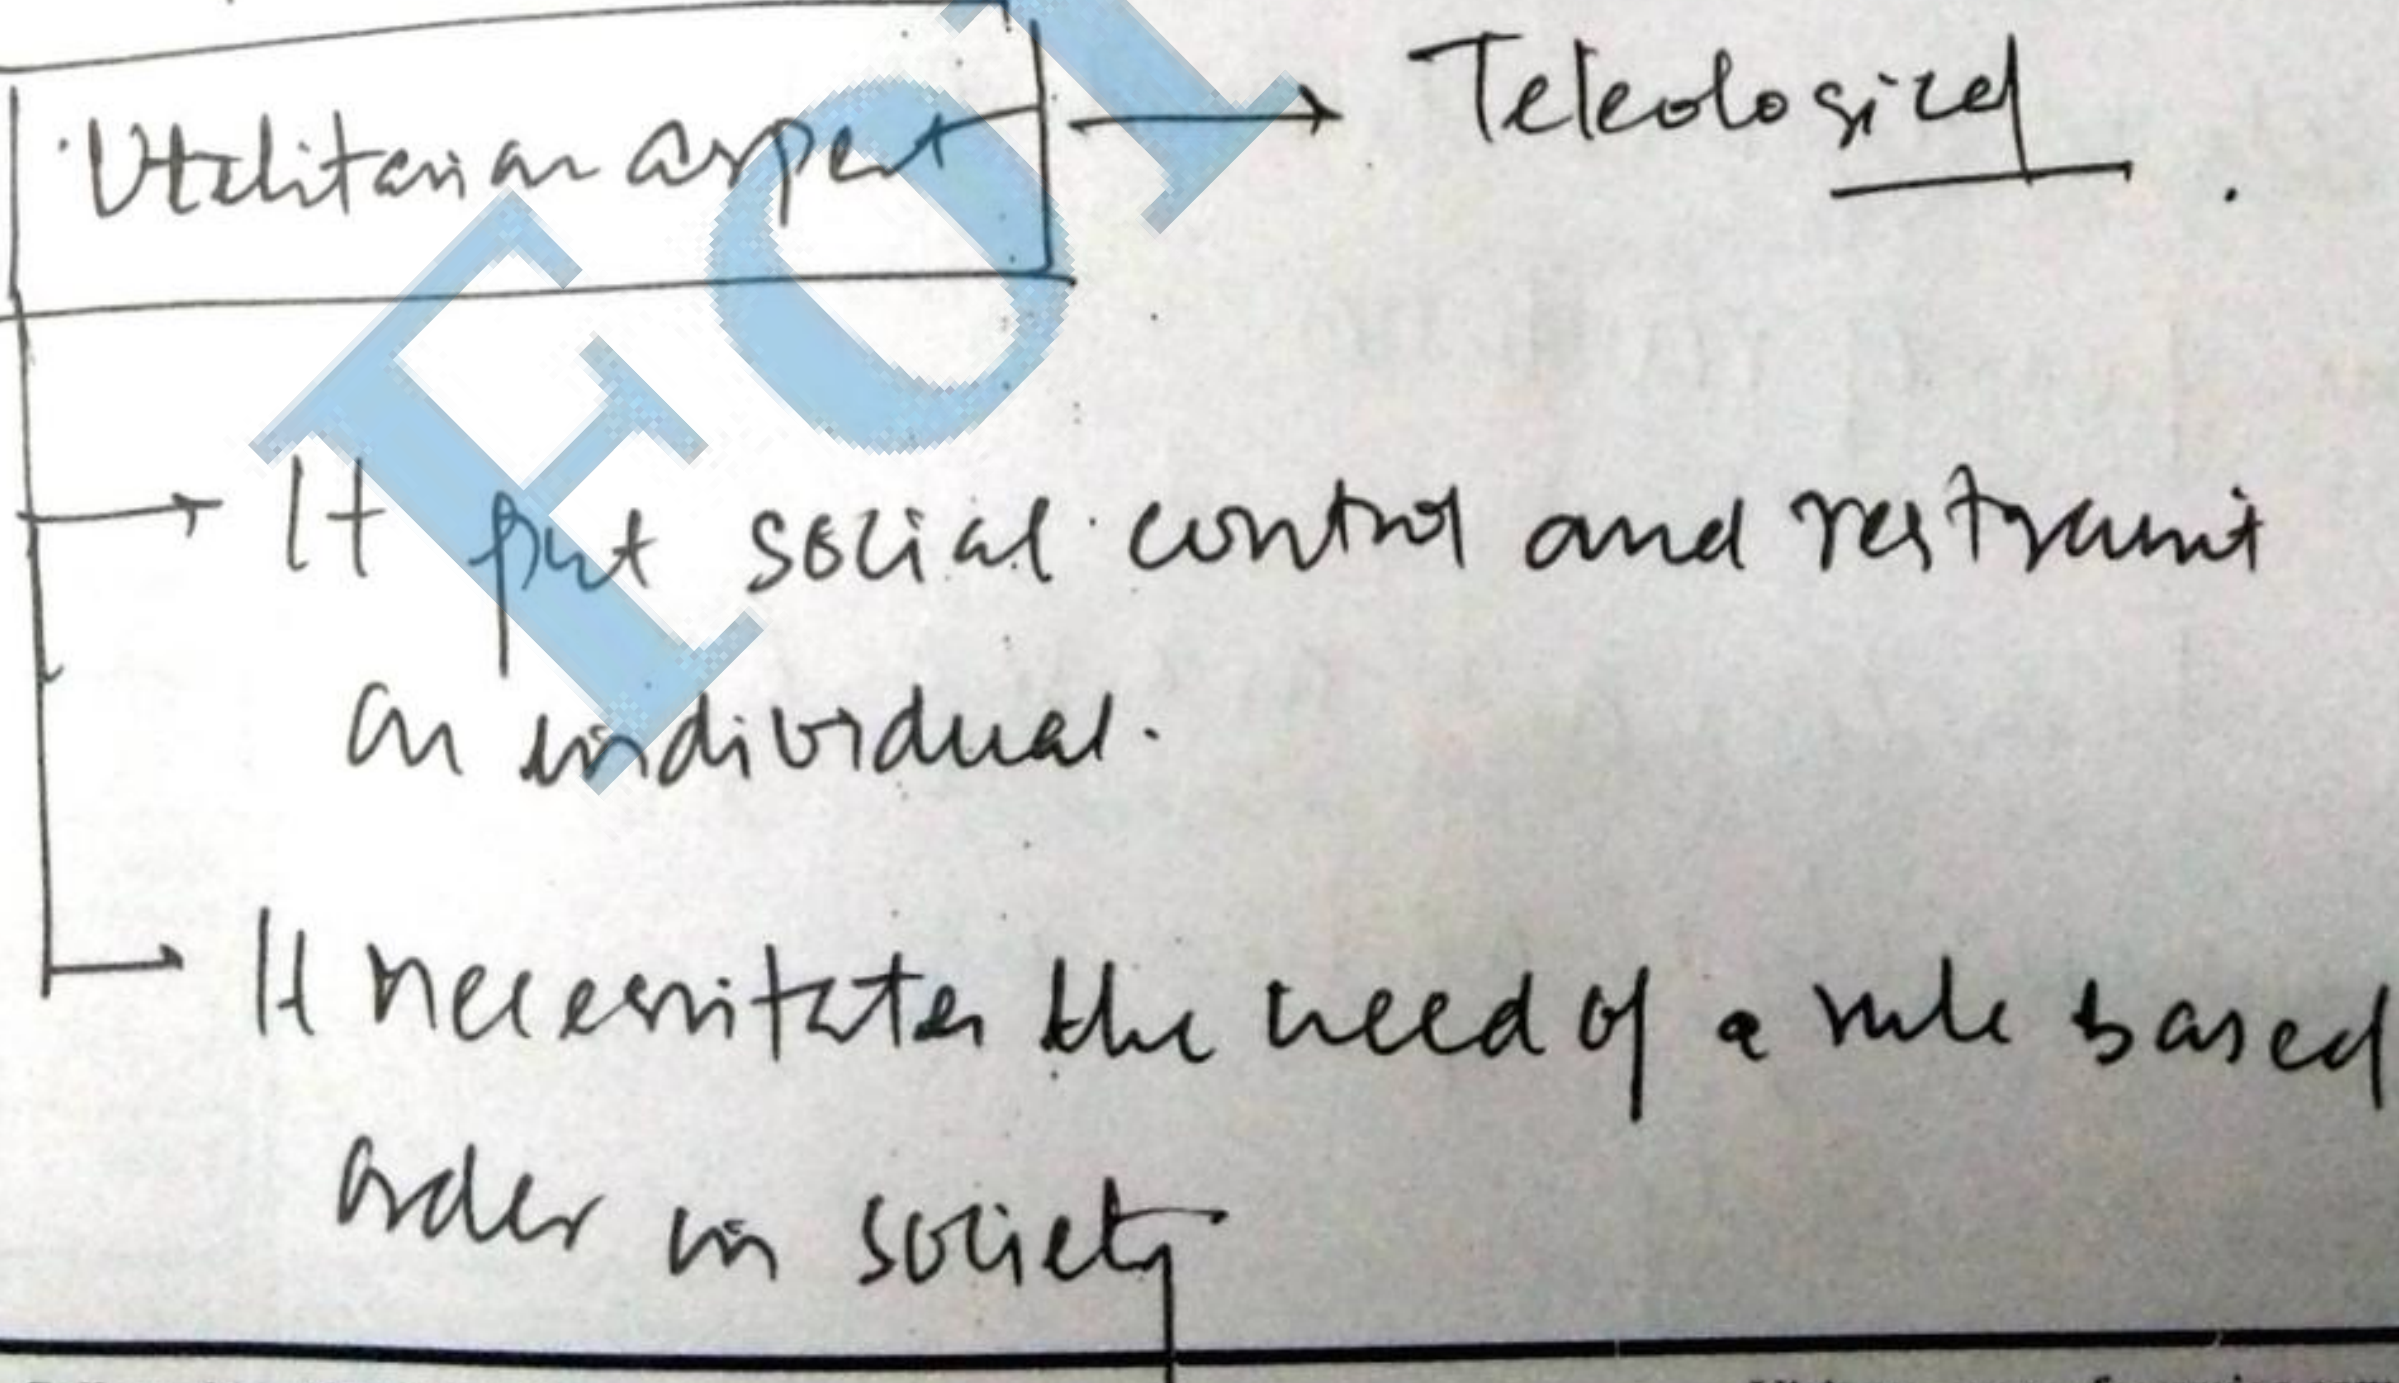 Utilitarian aspect → Teleological
→ It put social control and restraint
on individual.
→ It necessitates the need of a rule based
order in society